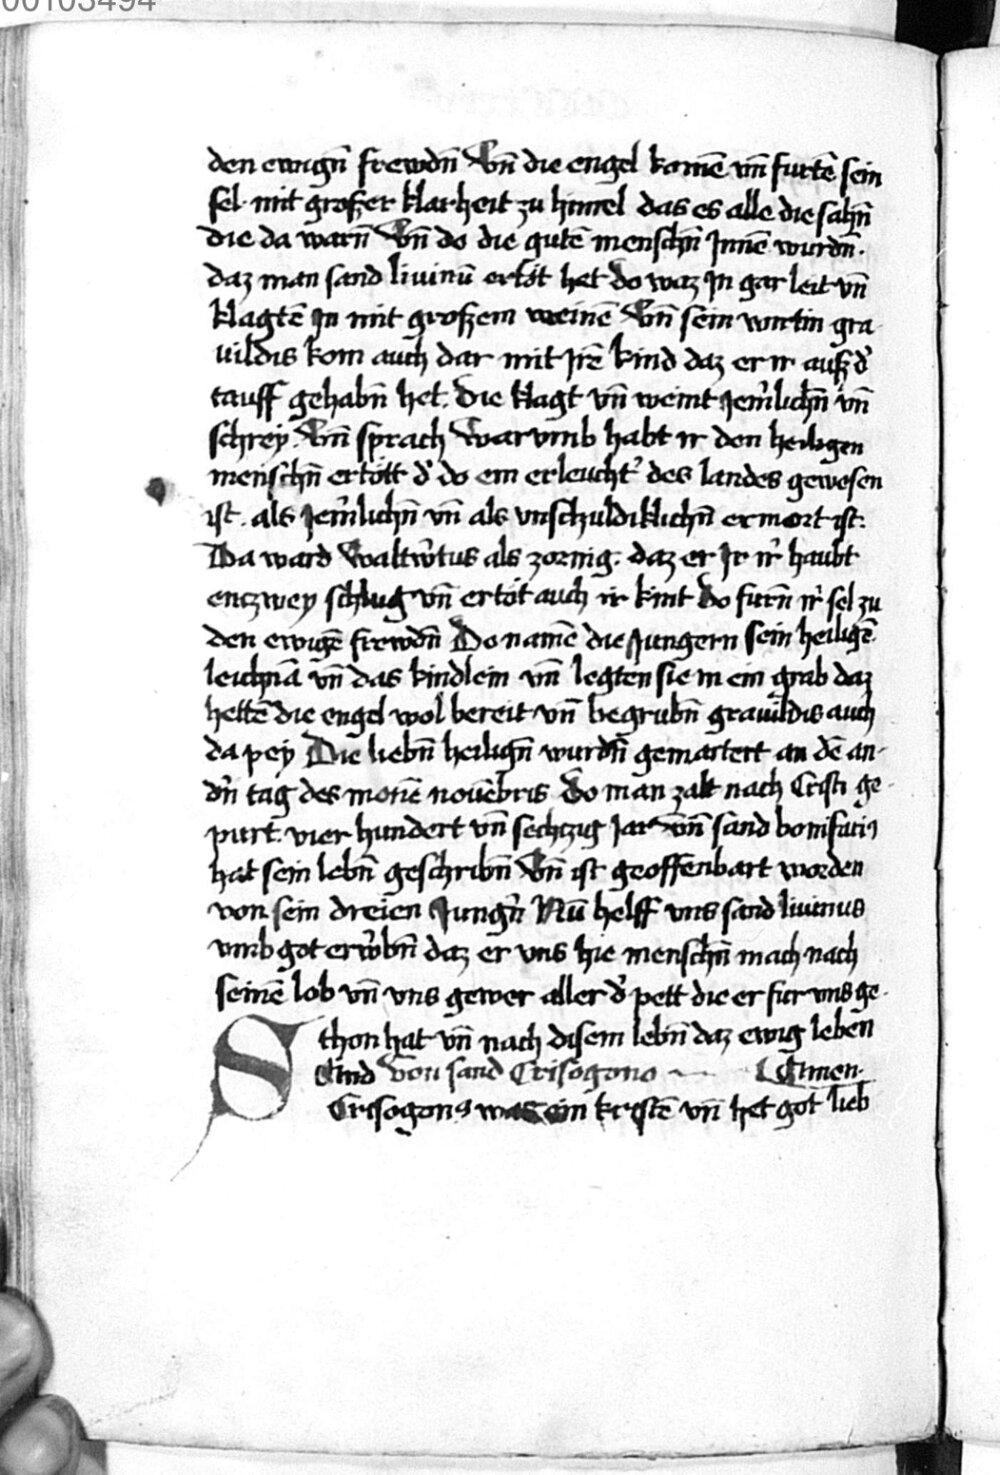 00103494
den ewign̄ frewdn̄ Vn̄ die engel komē vn̄ furtē sein
sel· mit groszer klarheit zu himel das es alle die sahn̄
die da warn̄ Vn̄ do die gutē menschn̄ Innē wurdn̄·
daz man sand liuinū ertöt het do waz In gar leit vn̄
klagtē In mit groszem weinē Vn̄ sein wirtin gra
uildis kom auch dar mit Irē kind daz er ir ausz d'
tauff gehabn̄ het· Die klagt vn̄ weint Jem'lichn̄ vn̄
schrey· Vn̄ sprach Warvmb habt ir den heiligen
menschn̄ ertött d' do ein erleucht' des landes gewesen
ist· als Jem'lichn̄ vn̄ als vnschuldiklichn̄ ermort ist·
Da ward Waltw'tus als zornig· daz er Ir ir' haubt
entzwey schlug vn̄ ertöt auch ir kint Do furn̄ ir' sel zu
den ewigē frewdn̄ Do namē die Jungern sein heiligē
leichnā vn̄ das kindlein vn̄ legten sie in ein grab daz
hettē die engel wol bereit vn̄ begrubn̄ grauildis auch
da pey Die liebn̄ heilign̄ wurdn̄ gemartert an dē an-
d'n̄ tag des monē nouēbris Do man zalt nach Cristi ge-
purt· vier hundert vn̄ sechtzig Jar Vn̄ sand bonifatiꝰ
hat sein lebn̄ geschribn̄ Vn̄ ist geoffenbart worden
von sein dreien Jung'n̄ Nū helff vns sand liuinus
vmb got erw'bn̄ daz er vns hie menschn̄ mach nach
seinē lob vn̄ vns gewer aller d' pett die er fur vns ge-
thon hat vn̄ nach disem lebn̄ daz ewig leben
Amen·
Von sand Crisogono
Crisogonꝰ was ein kristē vn̄ het got lieb